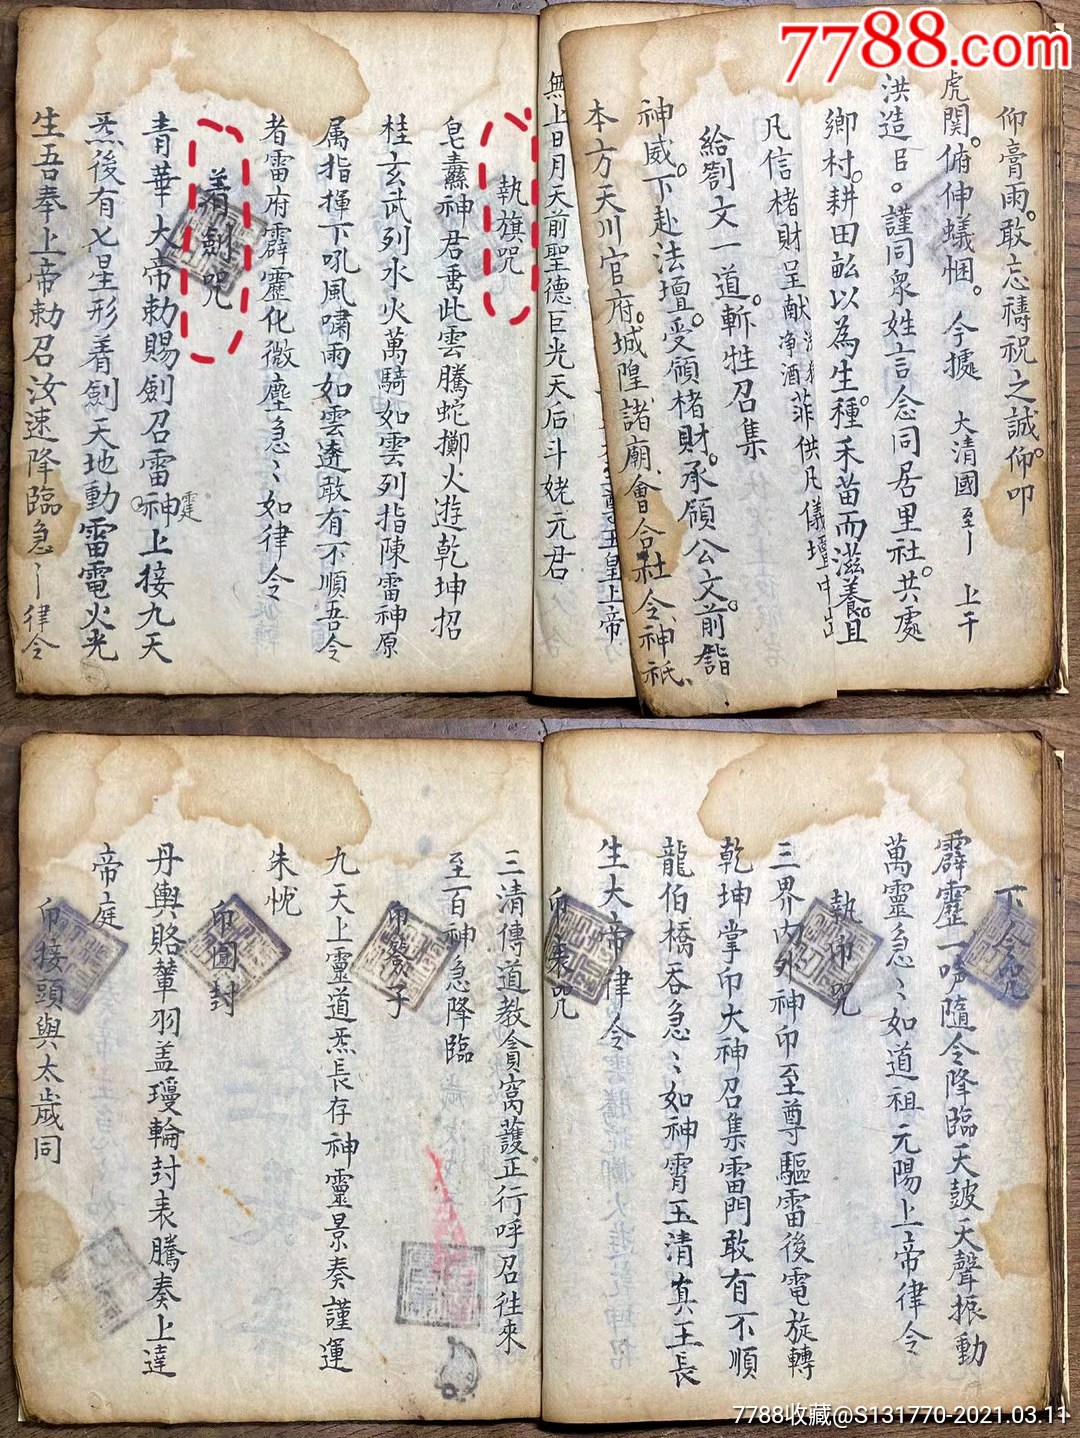 7788.com
仰膏雨。敢忘禱祝之誠。仰叩
虎関。俯伸蟻悃。今據 大清國 至丨 上干
洪造臣。謹同衆姓言念同居里社。共處
鄉村。耕田畆以為生。種禾苗而滋養。且
凡信楮財呈献 净酒菲供凡儀壇中
給劄文一道。斬牲召集
神威。下赴法壇。受領楮財。承領公文。前詣
本方天川官府。城隍諸廟。會合社令神祇、
玉皇上帝
無上日月天前聖德巨光天后斗姥元君
執旗咒
皂纛神君垂此雲騰蛇擲火遊乾坤招
桂玄武列水火萬騎如雲列指陳雷神原
属指揮下吼風嘯雨如雲遶敢有不順吾令
者雷府霹靂化微塵急〻如律令
着劍咒
青華大帝勅賜劍召雷神霆上接九天
炁後有七星形着劍天地動雷電火光
生吾奉上帝勅召汝速降臨急〻律令
下令咒
霹靂一吽隨令降臨天皷天聲振動
萬靈急〻如道祖元陽上帝律令
執印咒
三界內外神印至尊驅雷後電旋轉
乾坤掌印大神召集雷門敢有不順
龍伯橋吞急〻如神霄玉清真王長
生大帝律令
印表咒
三清傳道教貪窩護正行呼召往來
至百神急降臨
印籤子
九天上靈道炁長存神靈景奏謹運
朱忱
印圓封
丹輿賂輦羽盖瓊輪封表騰奏上達
帝庭
印接頭與太歲同
7788收藏@S131770-2021.03.11